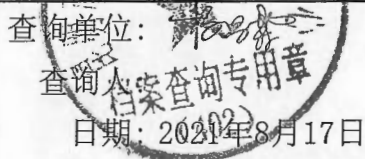 查询单位:
查询人:
档案查询专用章
(02)
日期: 2021年8月17日